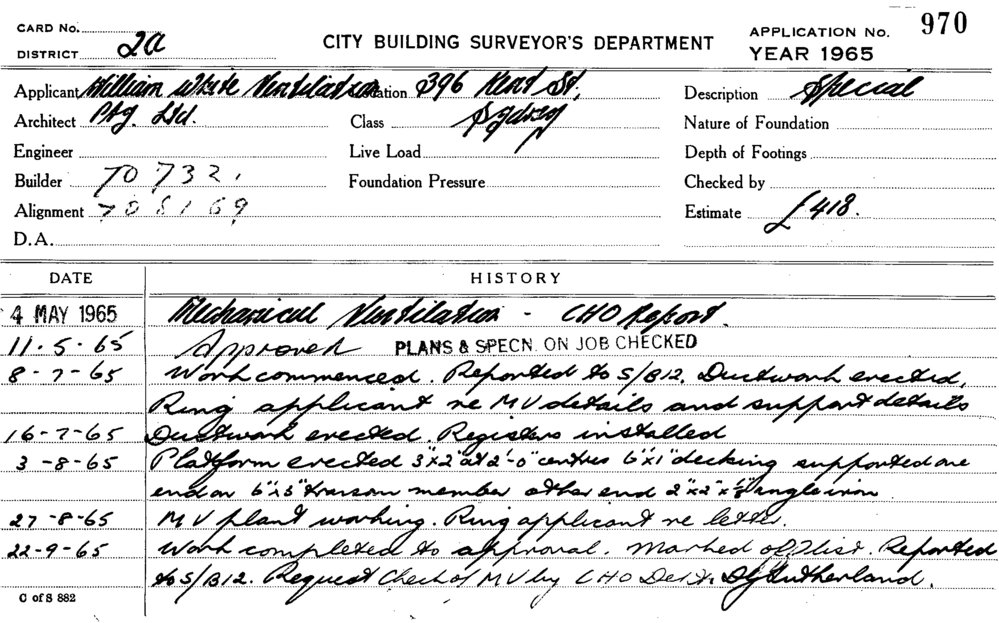 CARD No.
DISTRICT 2a
CITY BUILDING SURVEYOR'S DEPARTMENT
APPLICATION No. 970
YEAR 1965
Applicant William White Ventilation Location 396 Kent St, Description Special
Architect Pty. Ltd. Class Sydney Nature of Foundation
Engineer Live Load Depth of Footings
Builder 70 732. Foundation Pressure Checked by
Alignment 708169 Estimate £418.
D.A.
DATE HISTORY
4 MAY 1965 Mechanical Ventilation - CHO Report.
11-5-65 Approved PLANS & SPECN. ON JOB CHECKED
8-7-65 Work commenced. Reported to S/B12. Ductwork erected,
Ring applicant re MV details and support details
16-7-65 Ductwork erected. Registers installed
3-8-65 Platform erected 3"x2" at 2'-0" centres 6"x1" decking supported one
end on 6"x3" transom member other end 2"x2"x⅛" angle iron
27-8-65 MV plant working. Ring applicant re letter.
22-9-65 Work completed to approval. Marked off list. Reported
to S/B12. Request Check of MV by CHO Dept. Sutherland.
C of S 882